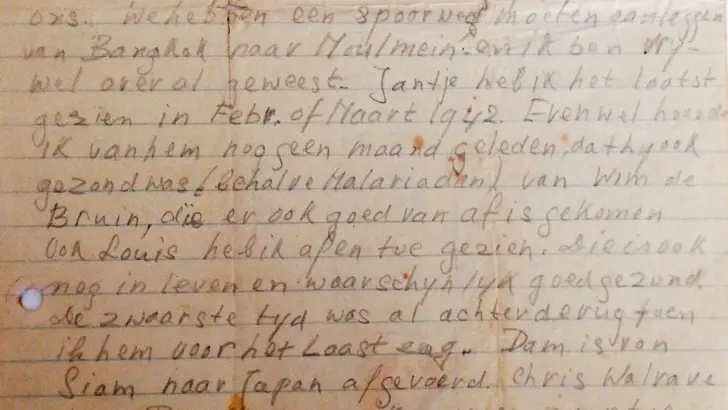 ons. We hebben een spoorweg moeten aanleggen
van Bangkok naar Moulmein en ik ben vry-
wel overal geweest. Jantje heb ik het laatst
gezien in Febr. of Maart 1942. Evenwel hoorde
ik van hem nog geen maand geleden, dat hy ook
gezond was (behalve Malaria dan) van Wim de
Bruin, die er ook goed van af is gekomen
Ook Louis heb ik af en toe gezien. Die is ook
nog in leven en waarschynlyk goed gezond.
De zwaarste tyd was al achter de rug toen
ik hem voor het laast zag. Dam is van
Siam naar Japan afgevoerd. Chris Walrave